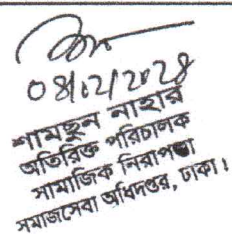 ০৪/০২/২০২৪
শামছুন নাহার
অতিরিক্ত পরিচালক
সামাজিক নিরাপত্তা
সমাজসেবা অধিদপ্তর, ঢাকা।